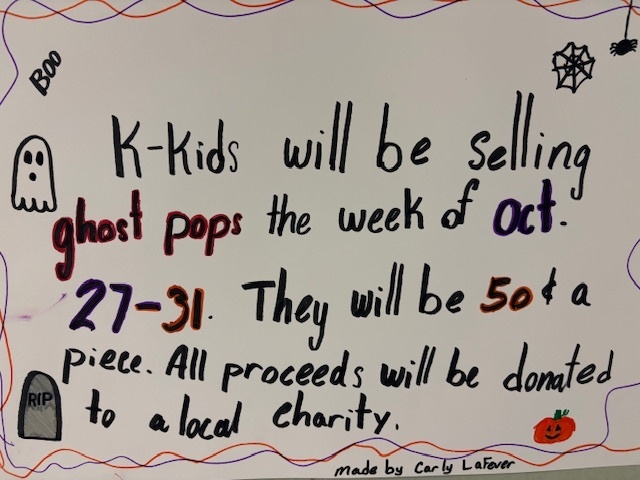 BOO
K-Kids will be selling
ghost pops the week of Oct.
27-31. They will be 50¢ a
piece. All proceeds will be donated
RIP
to a local charity.
made by Carly LaFever